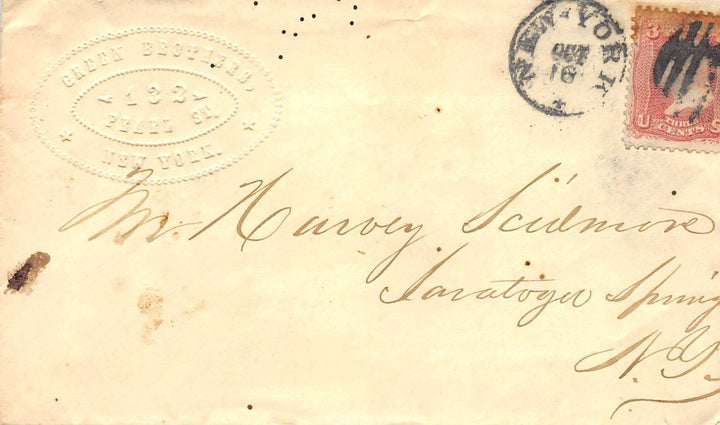 GREEN BROTHERS,
132
PEARL ST.
NEW YORK.
NEW-YORK
OCT
18
3
U THREE S
CENTS
Mr Harvey Scidmore
Saratoga Spring
N. Y.